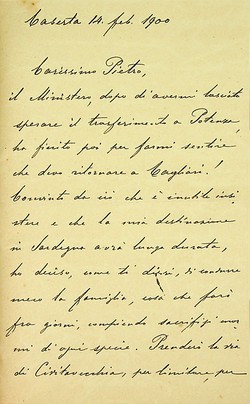 Caserta 14. feb. 1900
Carissimo Pietro,
il Ministero, dopo d'avermi lasciato
sperare il trasferimento a Potenza,
ha finito poi per farmi sentire
che devo ritornare a Cagliari!
Convinto da ciò che è inutile insi
stere e che la mia destinazione
in Sardegna avrà lunga durata,
ho deciso, come ti dissi, di condurre
meco la famiglia, cosa che farò
fra giorni, compiendo sacrifizi enor
mi d'ogni specie. Prenderò la via
di Civitavecchia, per limitare, per